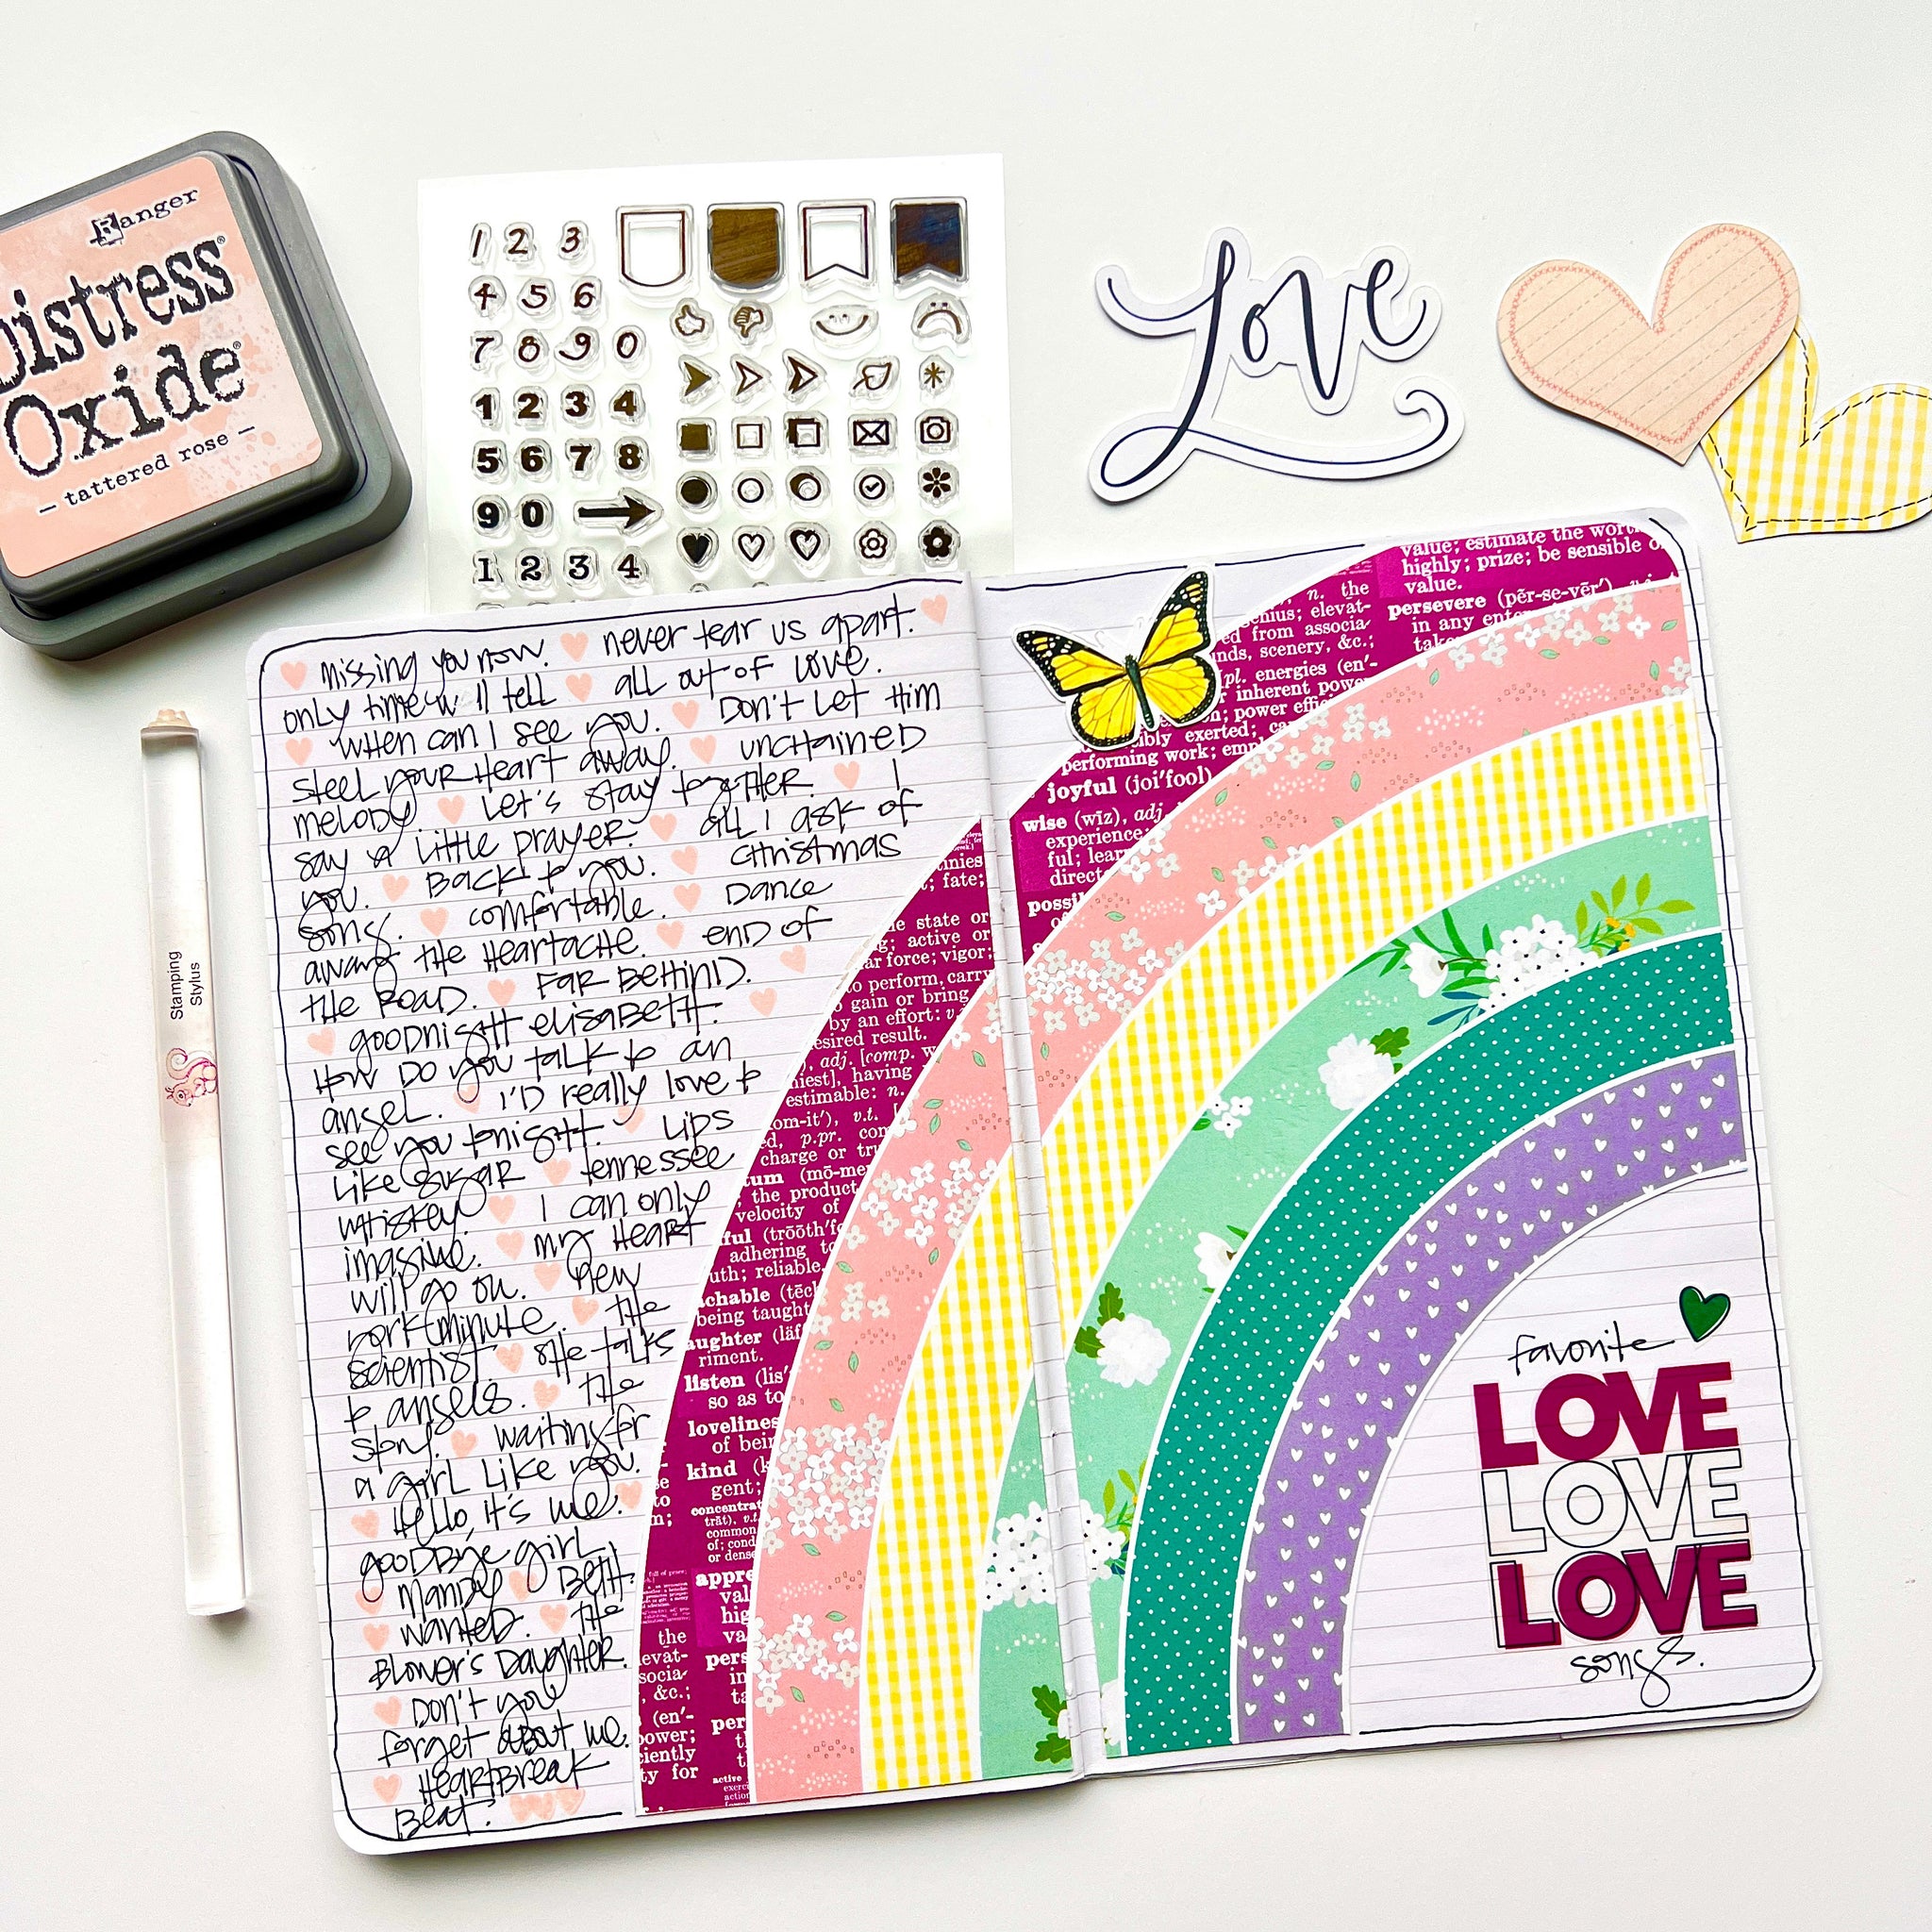 Ranger
Distress®
Oxide®
— tattered rose —
1 2 3
4 5 6
7 8 9 0
1 2 3 4
5 6 7 8
9 0
1 2 3 4
Love
Stamping
Stylus
missing you now. never tear us apart.
only time will tell all out of love.
When can I see you. Don't Let Him
steel your Heart away. unchained
melody Let's stay together. I
say a little prayer. all I ask of
you. Back to you. Christmas
song. comfortable. Dance
away the Heartache. end of
the Road. Far Behind.
goodnight elisabeth.
How do you talk to an
angel. I'd really love to
see you tonight. Lips
Like sugar tennessee
whiskey. I can only
imagine. my Heart
will go on. new
york minute. the
scientist. she talks
to angels. the
story. waiting for
a girl like you.
Hello, it's me.
goodbye girl
Mandy Beth.
wanted. the
Blower's Daughter.
Don't you
forget about me.
Heartbreak
Beat.
inies
; fate;
he state or
g; active or
ar force; vigor;
to perform, carry
gain or bring
by an effort: v.
esired result.
, adj. [comp. w
niest], having
estimable: n.
om-it'), v.t.
ed, p.pr. com
charge or tru
tum (mō-me
the product
velocity of
ful (trōōth'fo
adhering to
uth; reliable,
achable (tēch
being taught
aughter (läf
riment.
listen (lis'
so as to
loveliness
of bein
kind (k
gent;
concentrat
trāt), v.t.
common
of; cond
or dense
appre
val
hig
va
the
evat-
pers
socia-
in
, &c.;
ta
(en'-
per
ower;
ciently
ty for
active
exerc
action
value; estimate the worth
highly; prize; be sensible of
value.
persevere (pēr-se-vēr')
in any ente
take
n. the
enius; elevat-
ed from associa-
unds, scenery, &c.;
pl. energies (en'-
inherent power
; power effic
ibly exerted; ca
performing work; emp
joyful (joi'fool)
wise (wīz), adj.
experience;
ful; lear
direct
possi
favorite
LOVE
LOVE
LOVE
songs.